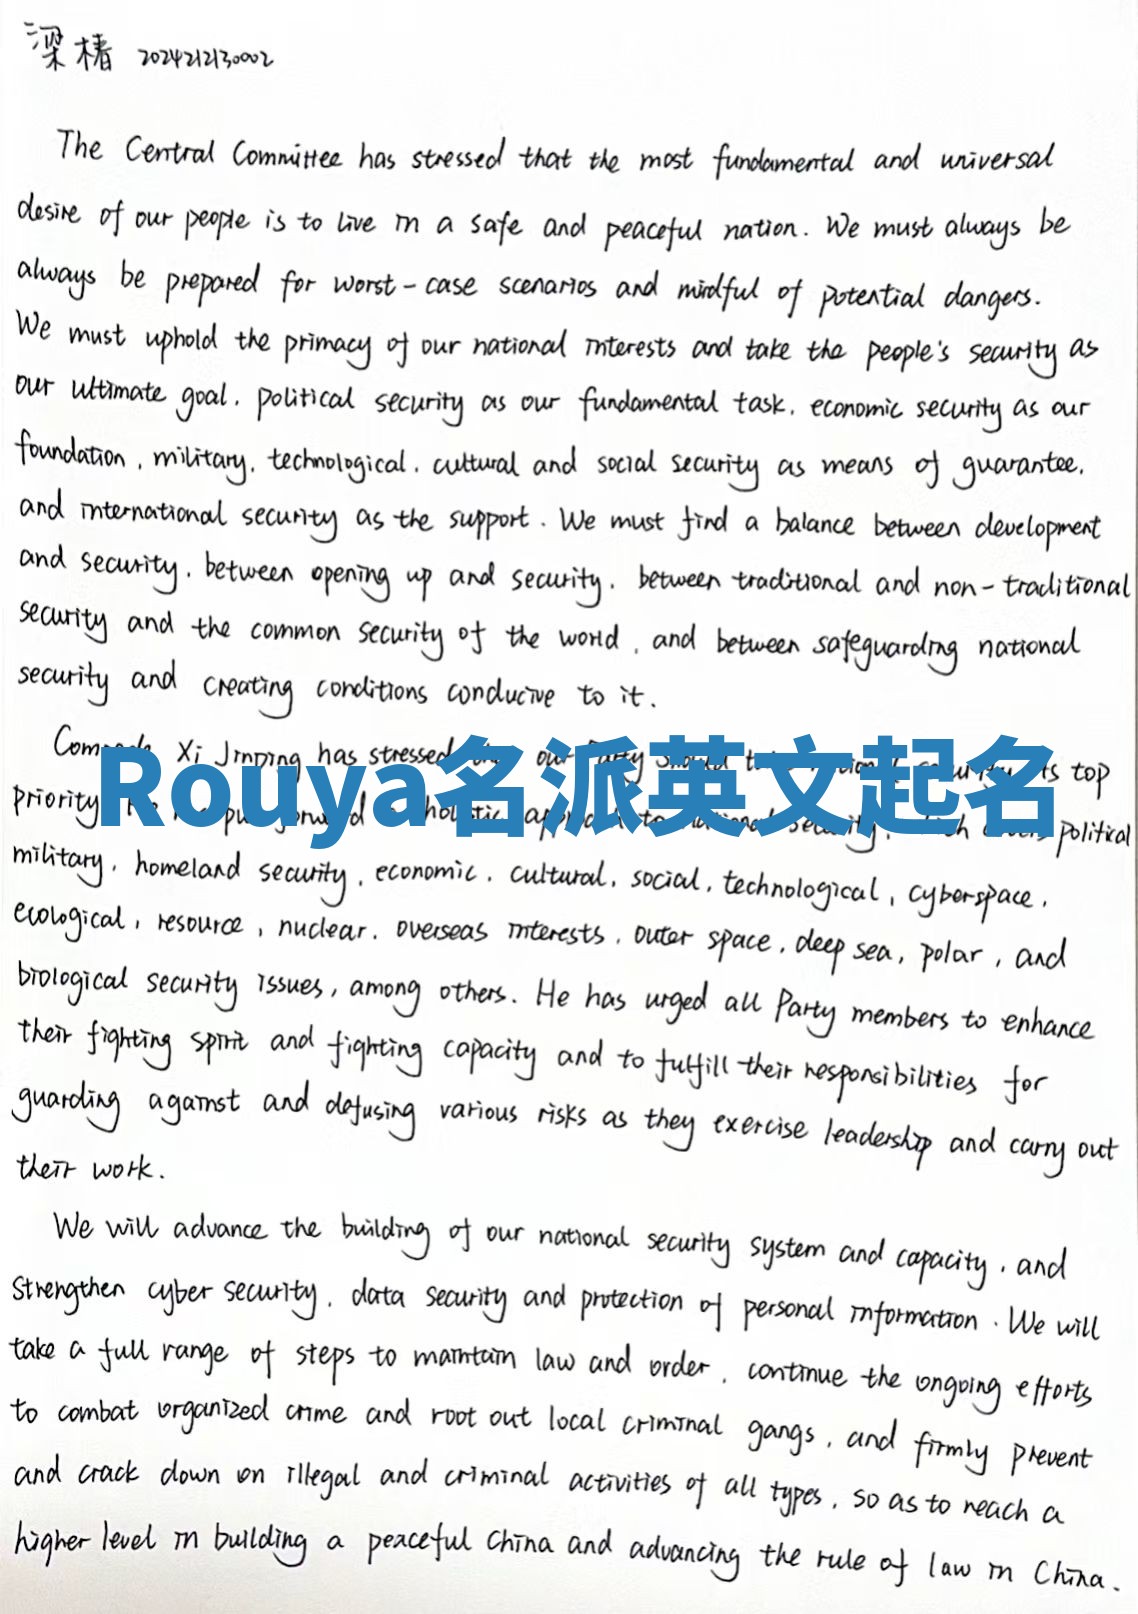 梁椿 2024212130002
The Central Committee has stressed that the most fundamental and universal
desire of our people is to live in a safe and peaceful nation. We must always be
always be prepared for worst-case scenarios and mindful of potential dangers.
We must uphold the primacy of our national interests and take the people's security as
our ultimate goal, political security as our fundamental task, economic security as our
foundation, military, technological, cultural and social security as means of guarantee,
and international security as the support. We must find a balance between development
and security, between opening up and security, between traditional and non-traditional
security and the common security of the world, and between safeguarding national
security and creating conditions conducive to it.
Xi Jinping has stressed our top
Rouya名派英文起名
priority political
military, homeland security, economic, cultural, social, technological, cyberspace,
ecological, resource, nuclear, overseas interests, outer space, deep sea, polar, and
biological security issues, among others. He has urged all Party members to enhance
their fighting spirit and fighting capacity and to fulfill their responsibilities for
guarding against and defusing various risks as they exercise leadership and carry out
their work.
We will advance the building of our national security system and capacity, and
strengthen cyber security, data security and protection of personal information. We will
take a full range of steps to maintain law and order, continue the ongoing efforts
to combat organized crime and root out local criminal gangs, and firmly prevent
and crack down on illegal and criminal activities of all types, so as to reach a
higher level in building a peaceful China and advancing the rule of law in China.